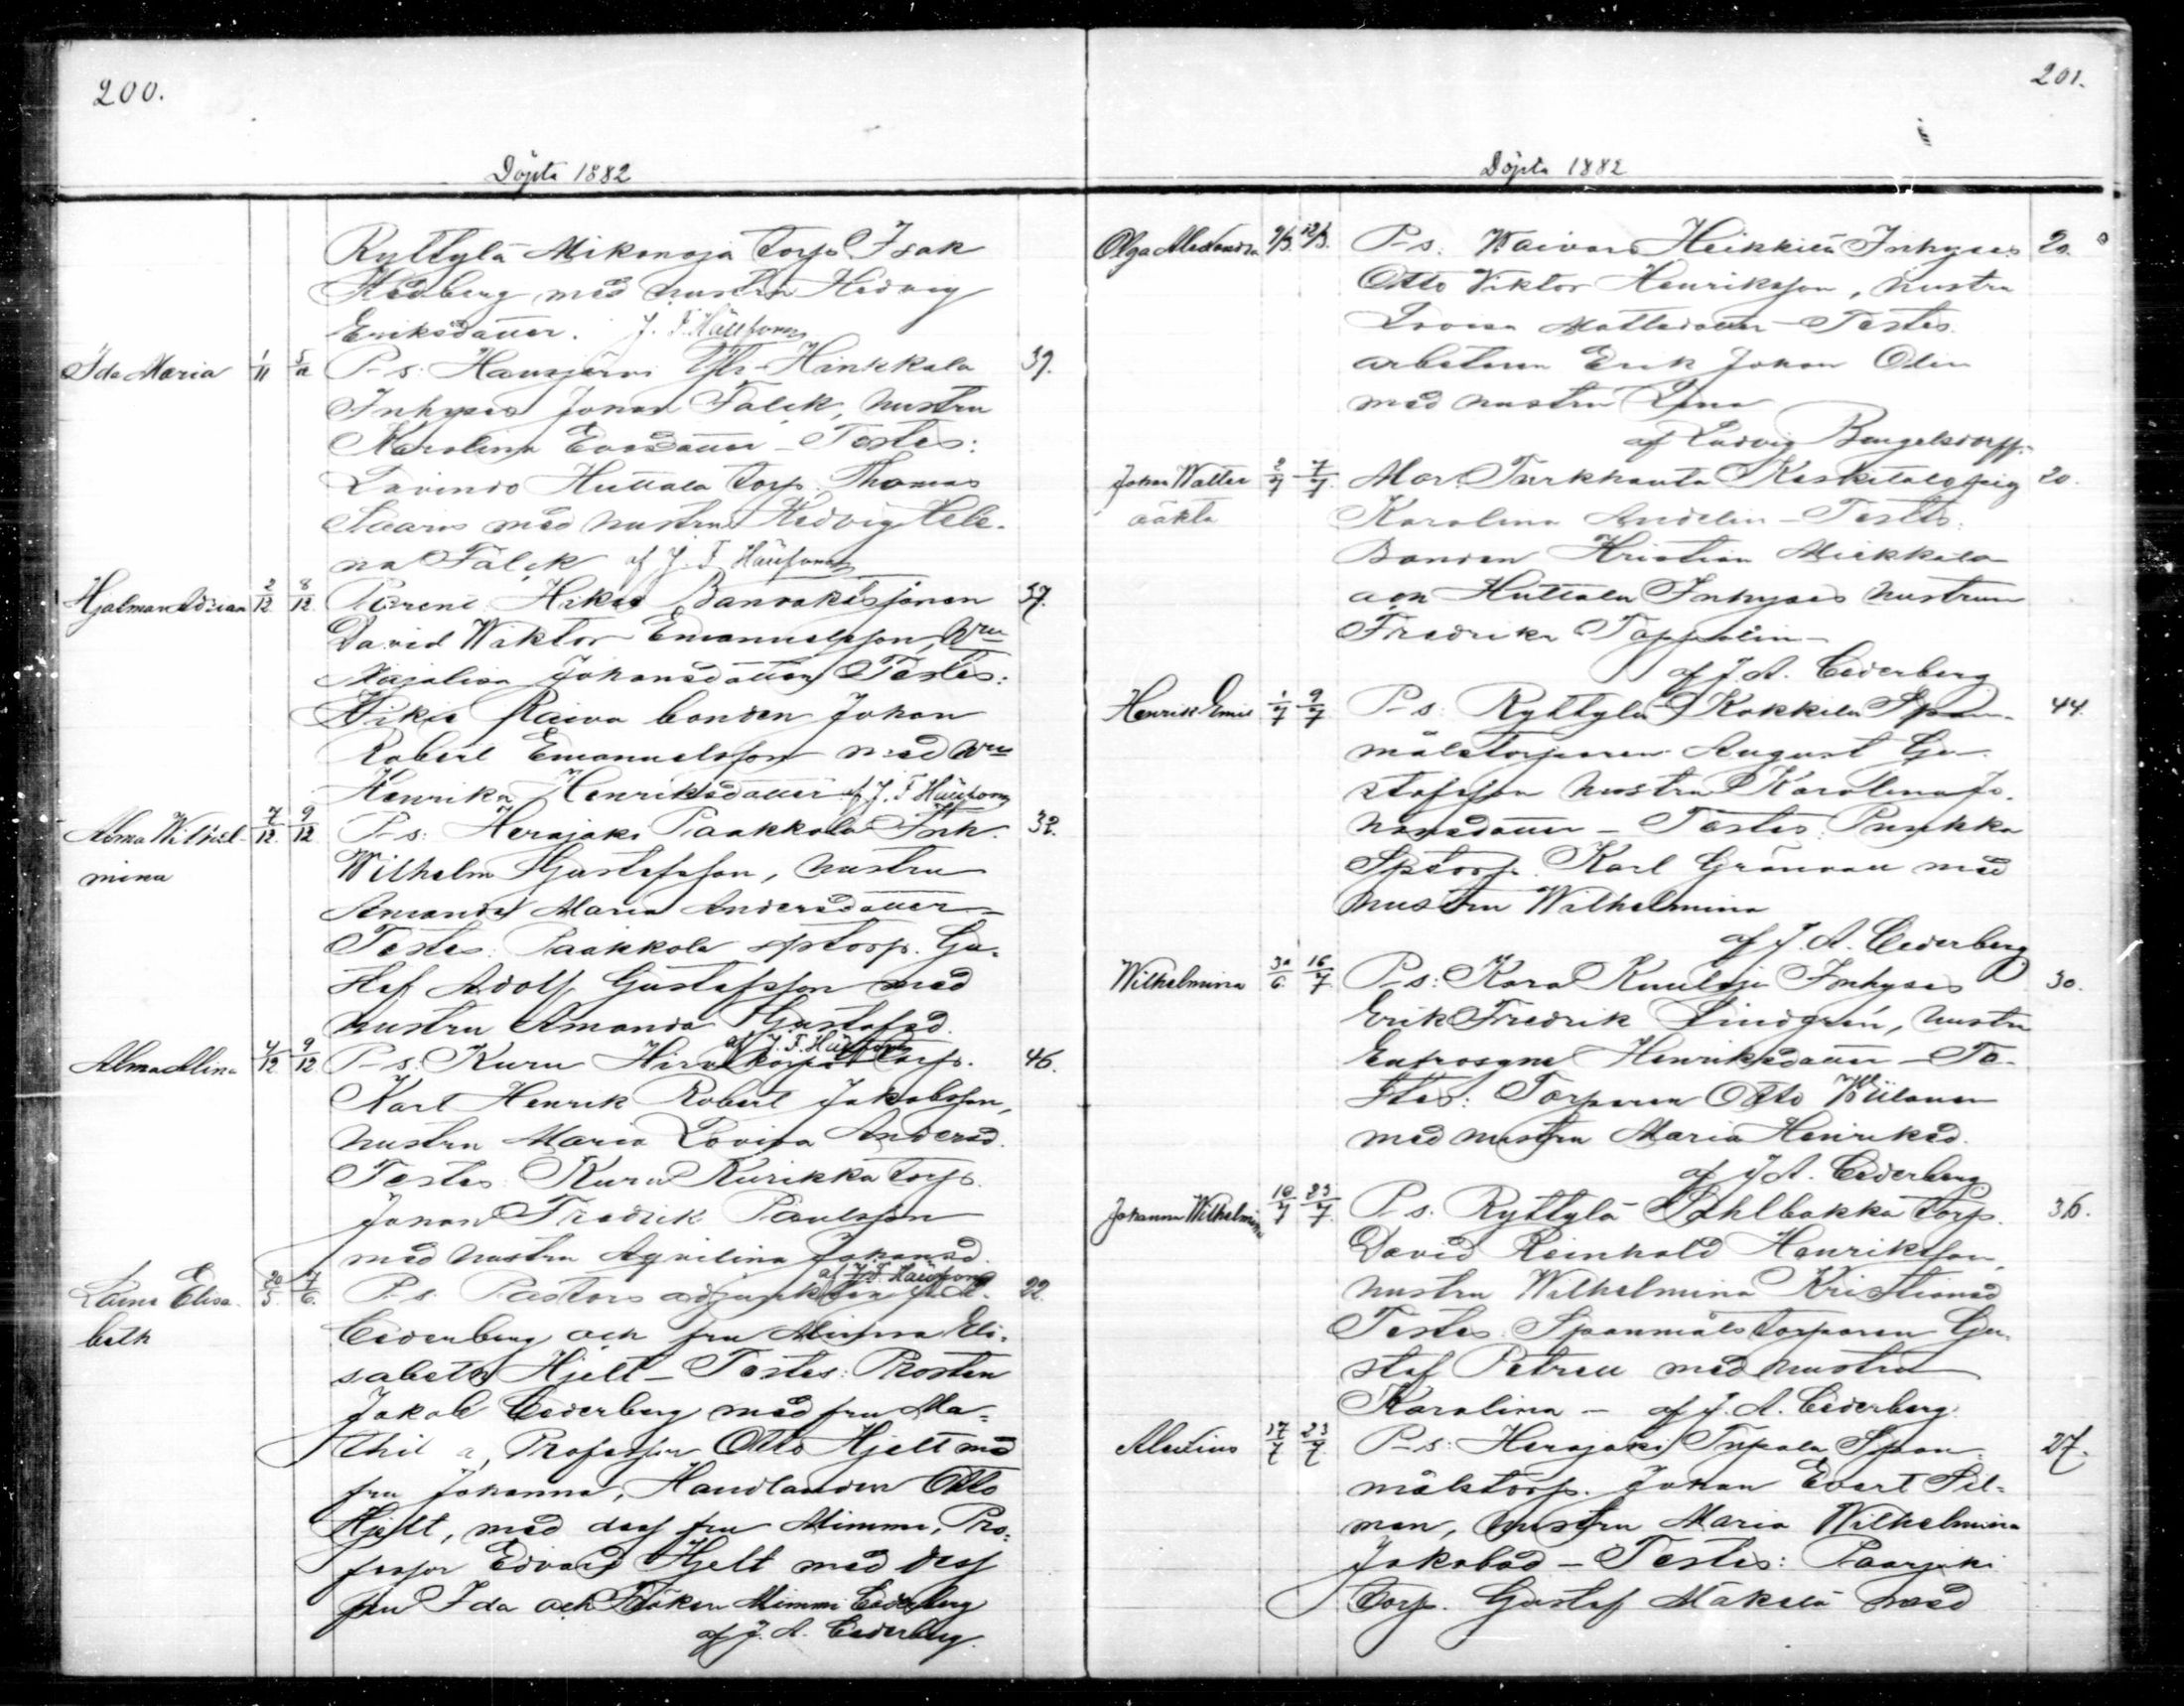 200.
Döpta 1882
Ryttylä Mikonoja torp. Isak
Hedberg med hustru Hedvig
Eriksdotter. J. F. Hällfors
Ida Maria 1/11 5/11 P-s: Hausjärvi Yli-Hinkkala 37.
Inhyses Johan Falck, hustru
Karolina Evasdotter - Testes:
Torp. Thomas
Saaris med hustru Hedvig Hele-
na Falck af J. F. Hällfors
Hjalmar Adrian 2/12 8/12 Hikiä Banvaktssonen 37.
David Wiktor Emanuelsson, hru
Majalisa Johansdotter Testes:
Hikiä Raiva bonden Johan
Robert Emanuelsson med hru
Henrika Henriksdotter af J. F. Hällfors
Alma Wilhel- 7/12 9/12 P-s: Herajoki Paakkola Inh. 32.
mina Wilhelm Gustafsson, hustru
Amanda Maria Andersdotter -
Testes: Paakkola sptorp. Gu-
staf Adolf Gustafsson med
hustru Amanda Gustafsd.
af J. F. Hällfors
Alma Alina 4/12 9/12 P-s: Kuru torp. 46.
Karl Henrik Robert Jakobsson,
hustru Maria Lovisa Andersd.
Testes: Kuru Kurikka torp.
Johan Fredrik Paulsson
med hustru Aqvilina Johansd.
af J. F. Hällfors
Laina Elisa- 20/5 7/6 P-s. Pastors adjunkten J. A. 22.
beth Cederberg och fru Mimma Eli-
sabeth Hjelt - Testes: Prosten
Jakob Cederberg med fru Ma-
thilda, Professor Otto Hjelt med
fru Johanna, Handlanden Otto
Hjelt, med dess fru Mimmi, Pro-
fessor Edvard Hjelt med dess
fru Ida och Fröken Mimmi Cederberg
af J. A. Cederberg.
201.
Döpta 1882
Olga Alexandra 9/3. 12/3. P-s. Heikkilä Inhyses 20.
Otto Viktor Henriksson, hustru
Lovisa Mattsdotter - Testes
arbetaren Erik Johan Odin
med hustru Lena
af Ludvig Bengelsdorff.
Johan Walter 2/7 7/7. Mor. Turkhauta Keskitalo pig 20.
oäkta Karolina Andelin - Testes:
Bonden Kristian Miekkala
och Huttala Inhyses hustrun
Fredrika
af J. A. Cederberg
Henrik Emil 1/7 9/7 P-s: Ryttylä Kokkila Span- 44.
målstorparen August Gu-
stafsson hustru Karolina Jo-
hansdotter - Testes: Punkka
Sptorp. Karl Grönvall med
hustru Wilhelmina
af J. A. Cederberg
Wilhelmina 30/6 16/7 P-s: Kara Inhyses 30.
Erik Fredrik Lindgrén, hustru
Eufrosyne Henriksdotter - Te-
stes: Torparen Otto
med hustru Maria Henriksd.
af J. A. Cederberg
Johanna Wilhelmina 10/7 23/7. P-s. Ryttylä Sahlbakka torp. 36.
David Reinhold Henriksson,
hustru Wilhelmina Kristiansd
Testes: Spanmåls torparen Gu-
staf Petrell med hustru
Karolina - af J. A. Cederberg.
17/7 23/7. P-s: Herajoki Span- 27.
målstorp. Johan Evert Sil-
man, hustru Maria Wilhelmina
Jakobsd - Testes:
torp. Gustaf Mäkelä med